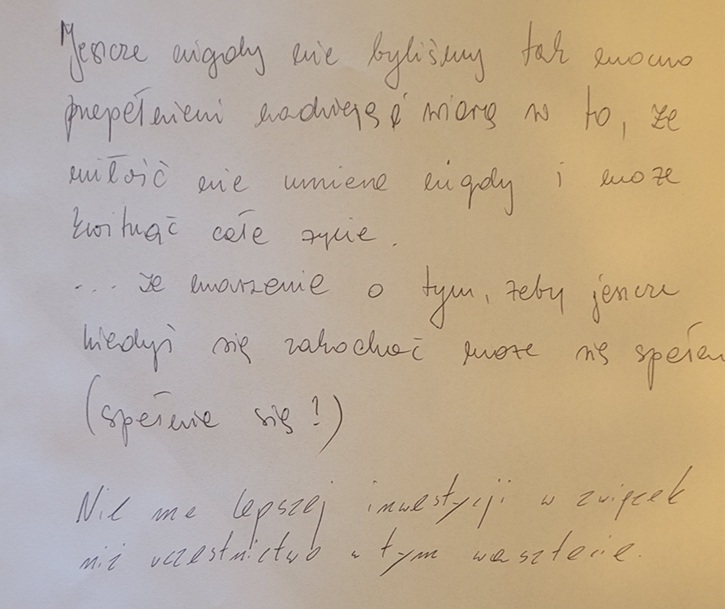 Jeszcze nigdy nie byliśmy tak mocno
przepełnieni nadzieją i wiarą w to, że
miłość nie umiera nigdy i może
kwitnąć całe życie.
... że marzenie o tym, żeby jeszcze
kiedyś się zakochać może się speł
(spełnia się!)
Nie ma lepszej inwestycji w związek
niż uczestnictwo w tym warsztacie.